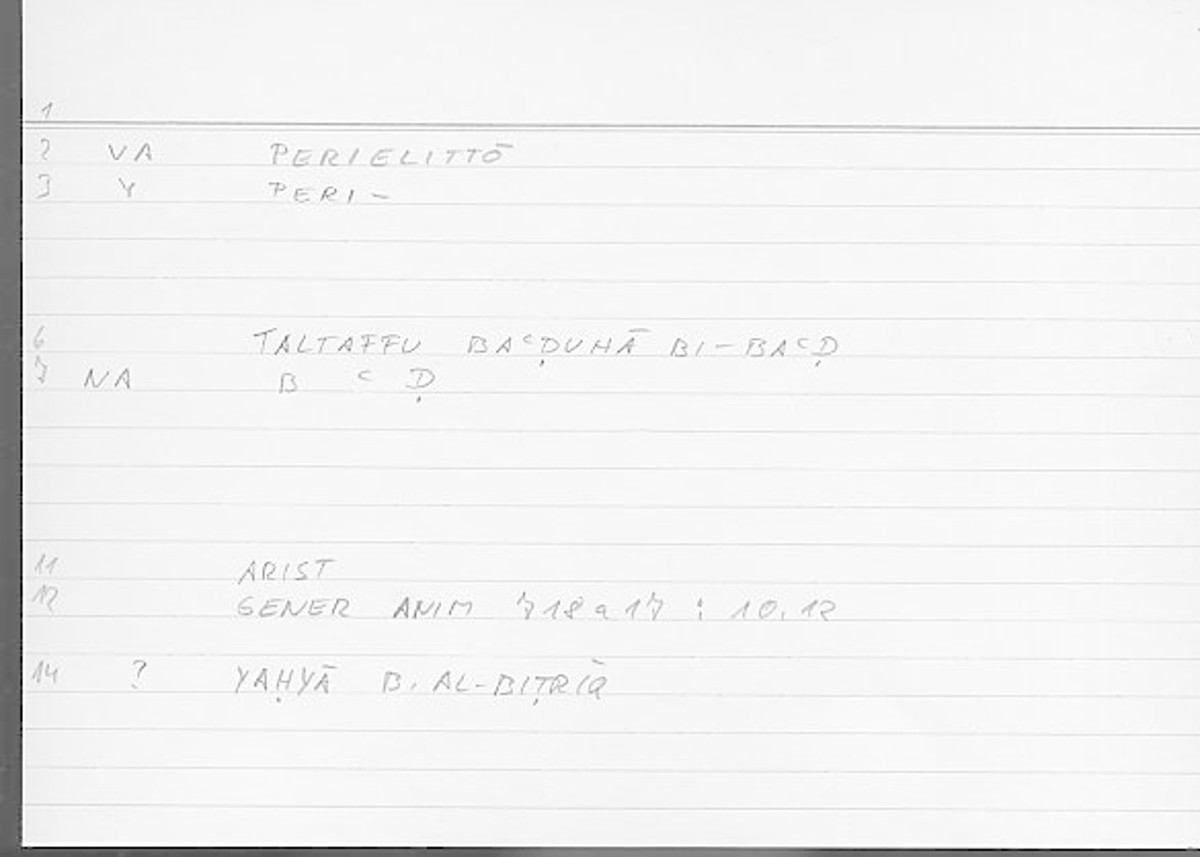 1
2 VA PERIELITTŌ
3 Y PERI-
6 TALTAFFU BAᶜḌUHĀ BI-BAᶜḌ
7 NA B ᶜ Ḍ
11 ARIST
12 GENER ANIM 718a17 : 10.12
14 ? YAḤYĀ B. AL-BIṬRĪQ